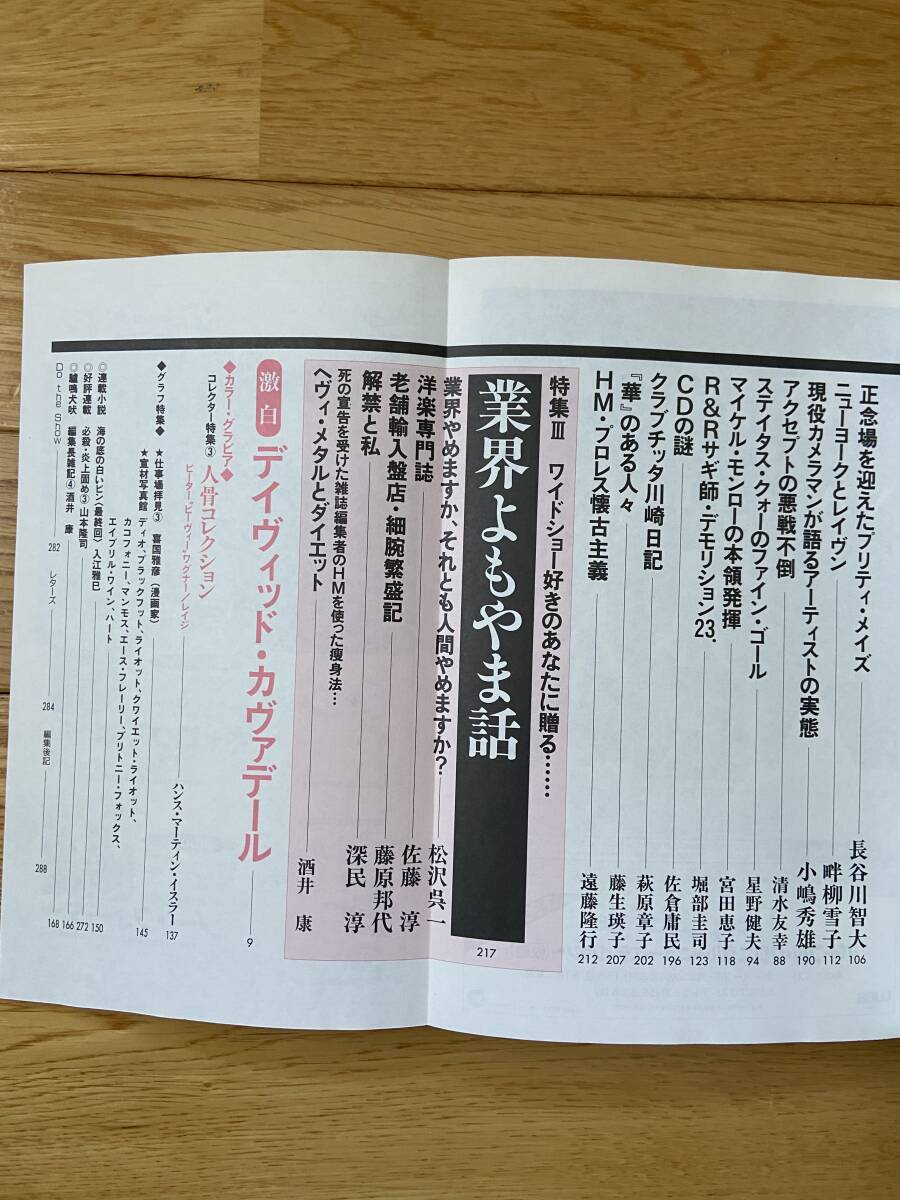 正念場を迎えたプリティ・メイズ
長谷川智大
106
ニューヨークとレイヴン
畔柳雪子
112
現役カメラマンが語るアーティストの実態
小嶋秀雄
190
アクセプトの悪戦不倒
清水友幸
88
ステイタス・クォーのファイン・ゴール
星野健夫
94
マイケル・モンローの本領発揮
宮田恵子
118
R&Rサギ師・デモリション23.
堀部圭司
123
CDの謎
佐倉庸民
196
クラブチッタ川崎日記
萩原章子
202
『華』のある人々
藤生瑛子
207
HM・プロレス懐古主義
遠藤隆行
212
特集Ⅲ ワイドショー好きのあなたに贈る……
業界よもやま話
217
業界やめますか、それとも人間やめますか?
松沢呉一
洋楽専門誌
佐藤 淳
老舗輸入盤店・細腕繁盛記
藤原邦代
解禁と私
深民 淳
死の宣告を受けた雑誌編集者のHMを使った痩身法…
ヘヴィ・メタルとダイエット
酒井 康
激白 デイヴィッド・カヴァデール
9
◆カラー・グラビア◆
コレクター特集③ 人骨コレクション
ピーター"ピーヴィー"ワグナー/レイジ
ハンス・マーティン・イスラー
137
◆グラフ特集◆
★仕事場拝見③ 喜国雅彦(漫画家)
★宣材写真館 ディオ、ブラックフット、ライオット、クワイエット・ライオット、
カコフォニー、マンモス、エース・フレーリー、ブリトニー・フォックス、
エイプリル・ワイン、ハート
145
◎連載小説 海の底の白いヒレ(最終回) 入江雅巳
150
◎好評連載 必殺・炎上固め③ 山本隆司
272
◎驢鳴犬吠 編集長雑記④ 酒井 康
166
Do the Show
282
レターズ
284
編集後記
288
168